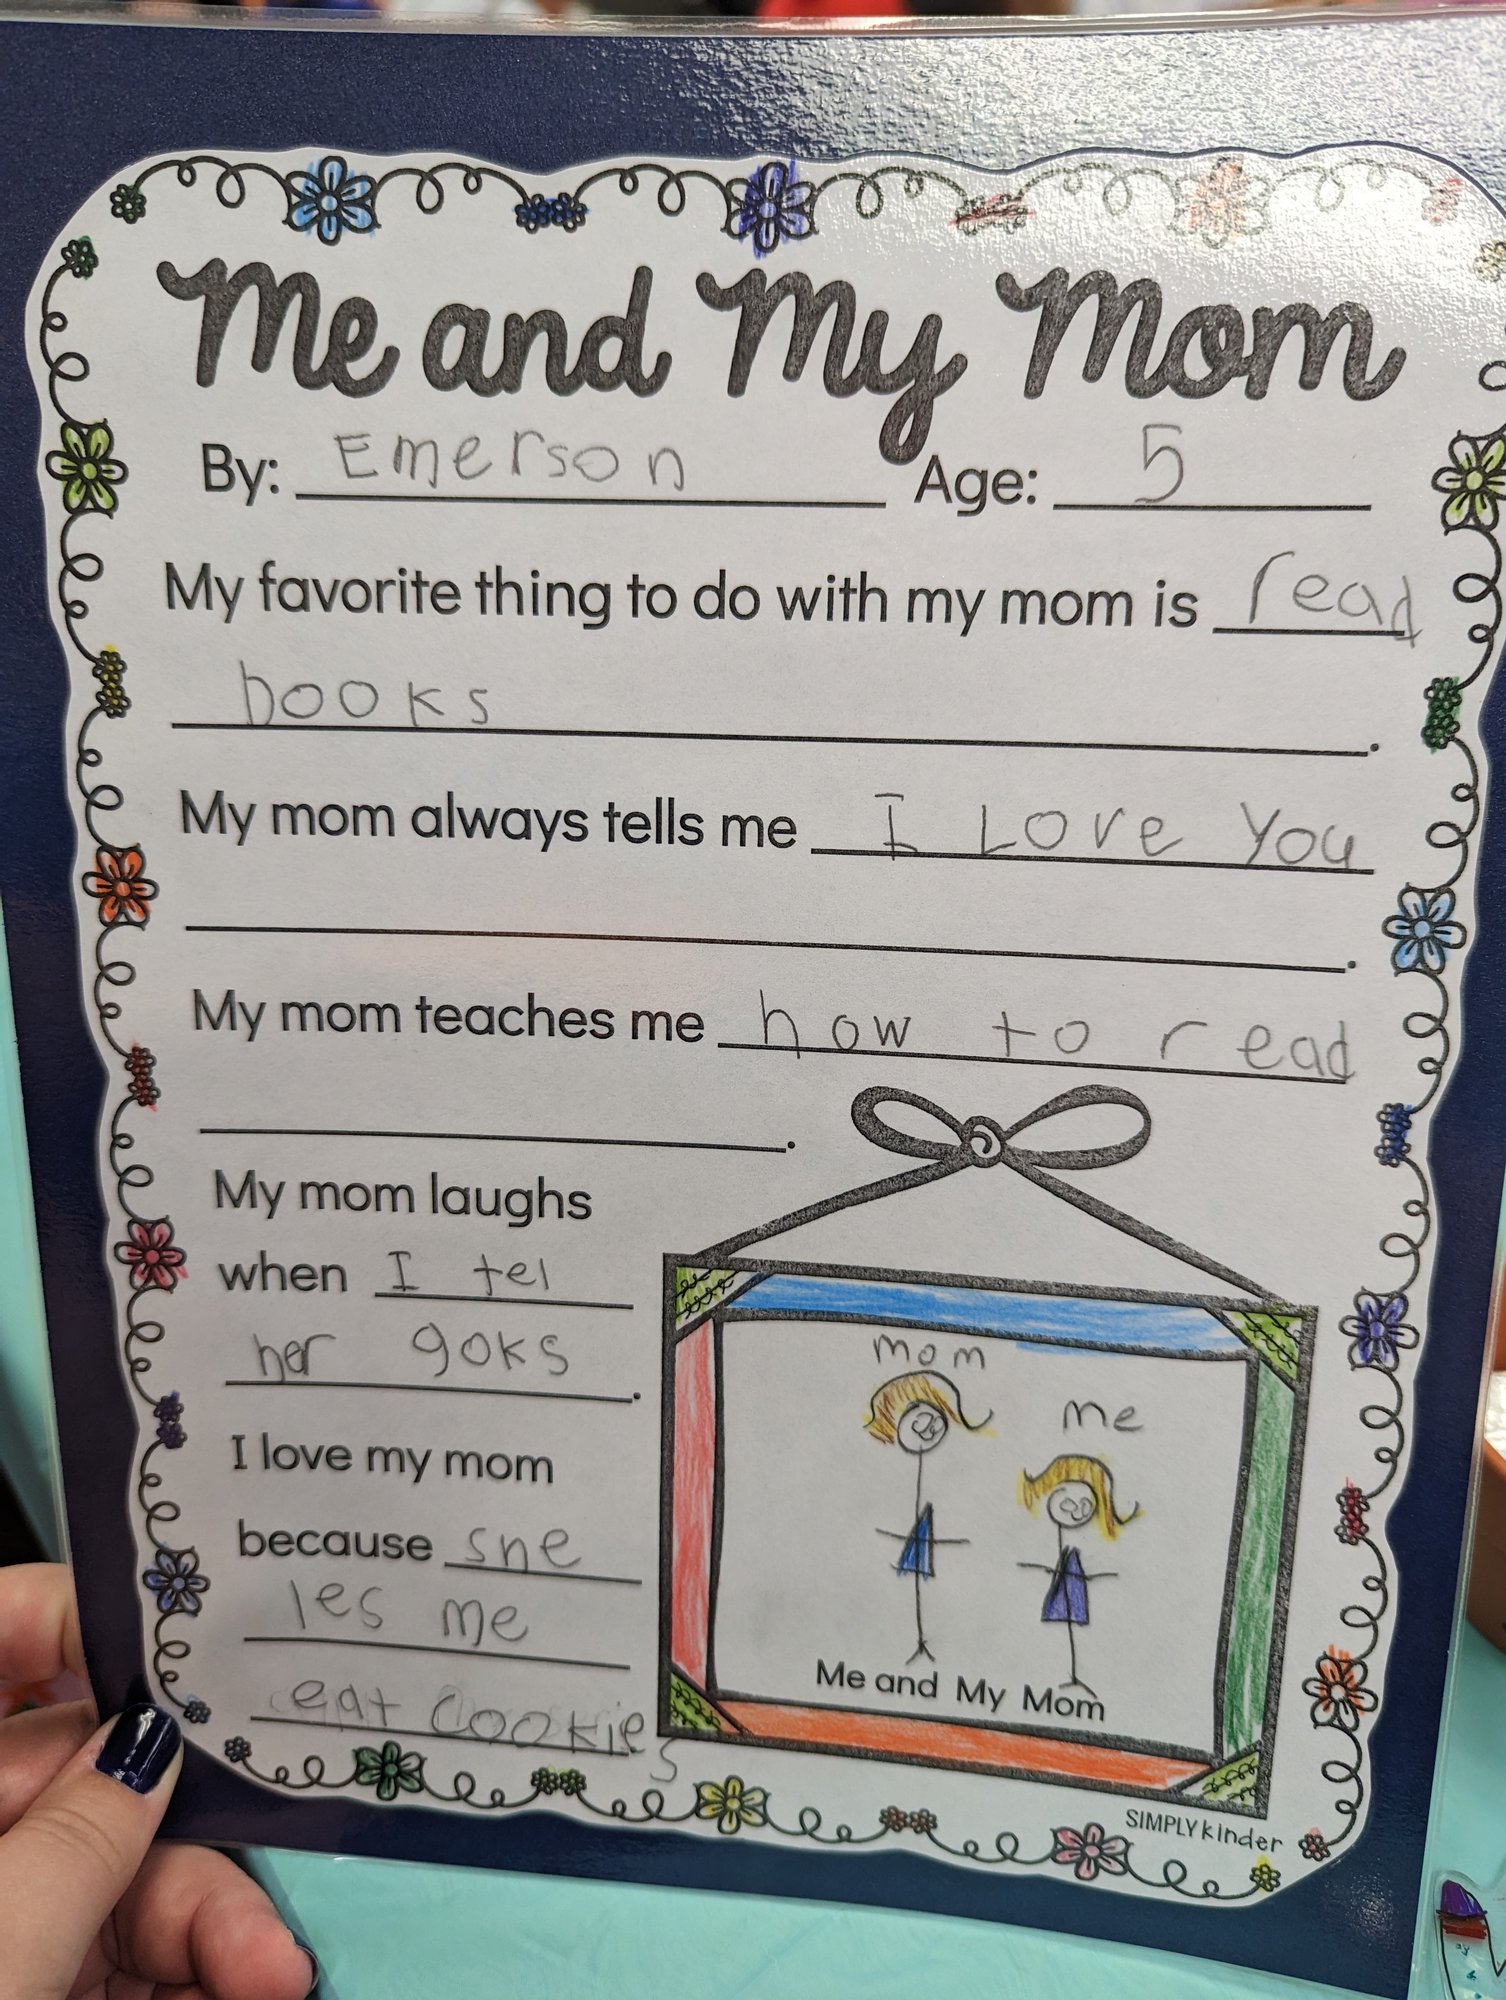 Me and My Mom
By: Emerson Age: 5
My favorite thing to do with my mom is read
books.
My mom always tells me I Love You
.
My mom teaches me how to read
.
My mom laughs
when I tel
her goks.
I love my mom
because she
les me
eat cookies
mom
me
Me and My Mom
SIMPLYkinder